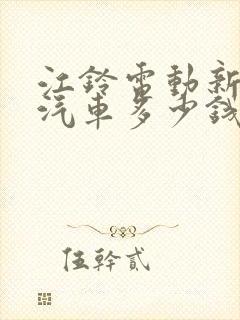 江鈴電動新
汽車多少錢
伍幹貳